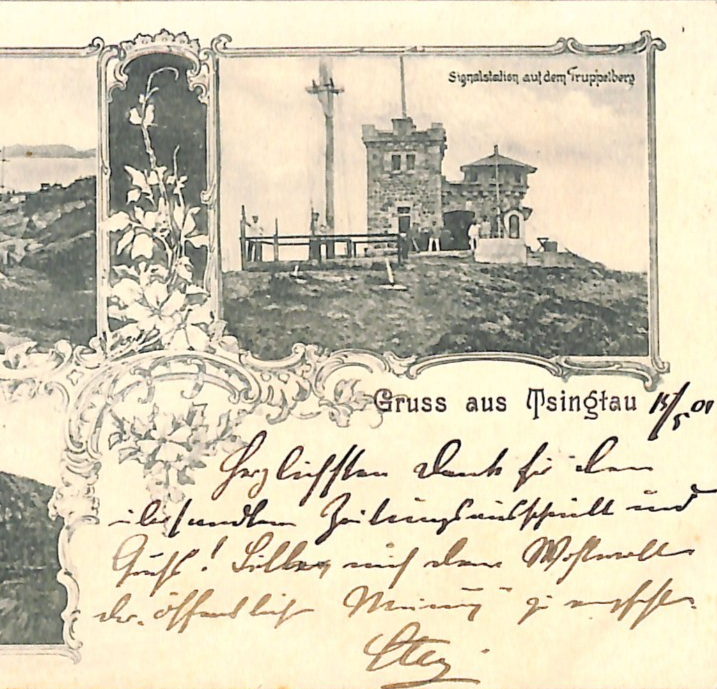 Signalstation auf dem Truppelberg
Gruss aus Tsingtau 15/5 01
Herzlichsten Dank für den
übersandten Zeitungsausschnitt und
Gruß! Bitte mich dem Wohlwollen
der öffentlichen Meinung zu empfehlen.